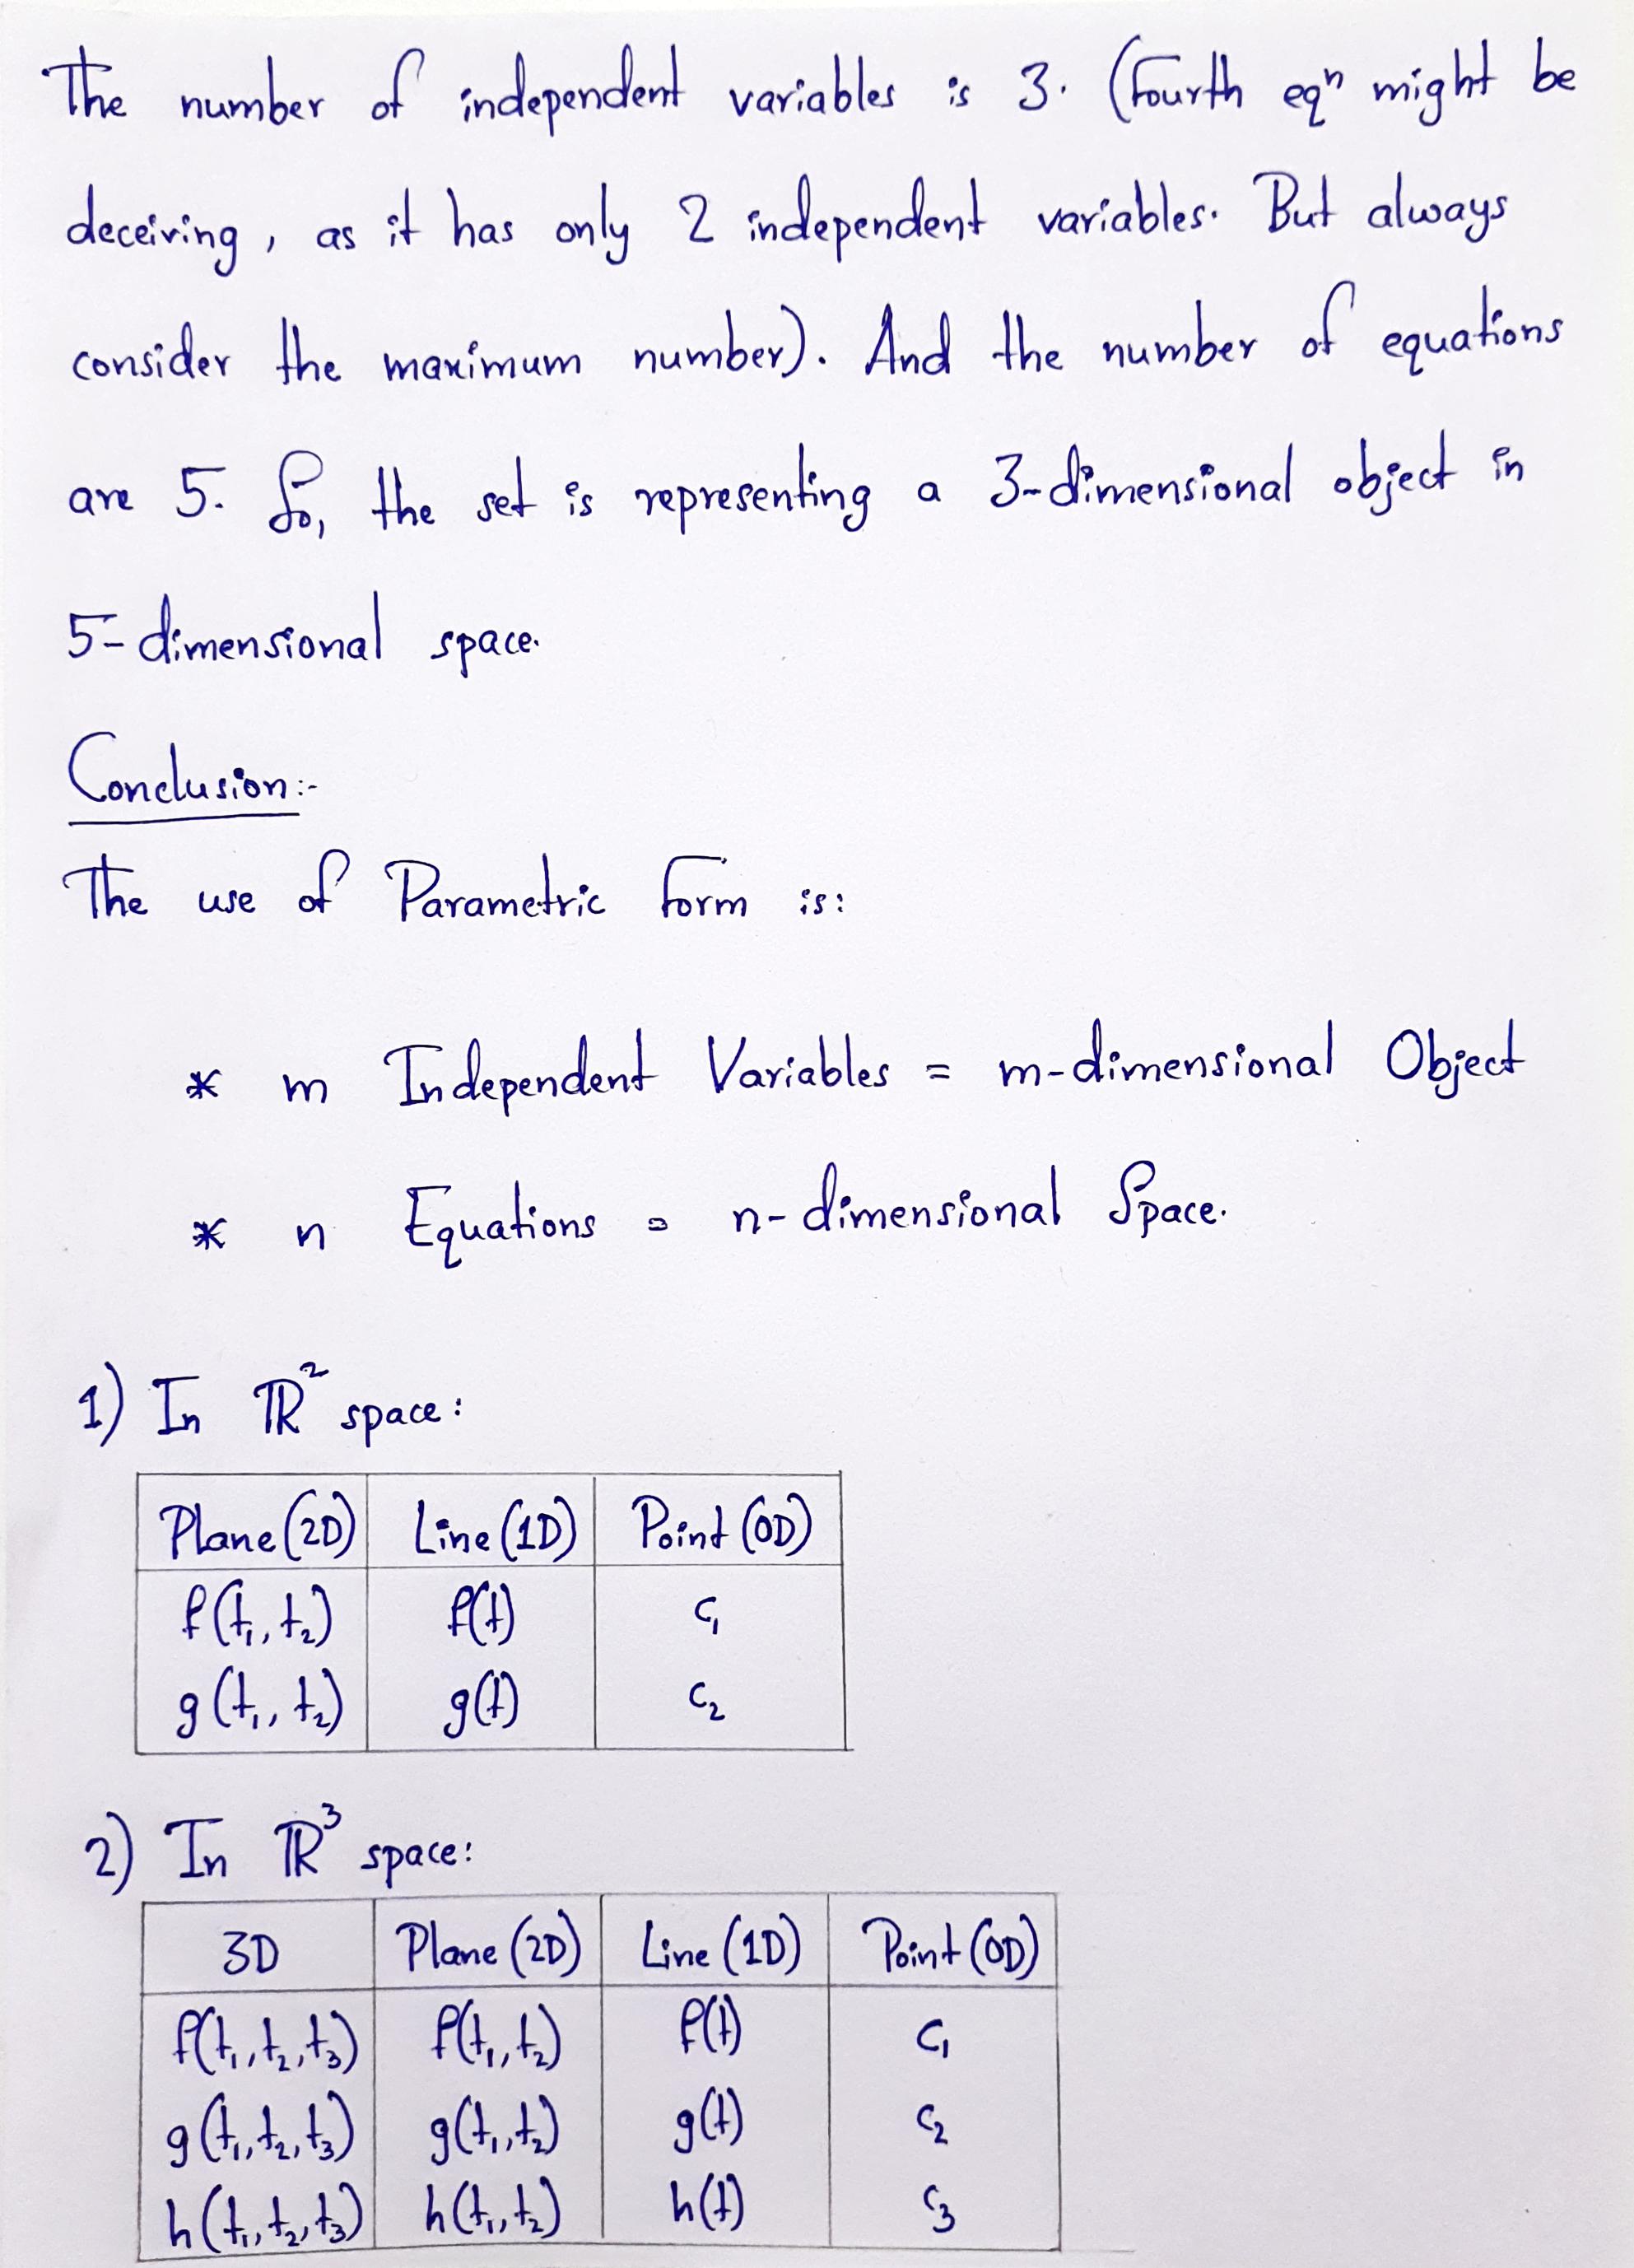 The number of independent variables is 3. (Fourth eqⁿ might be
deceiving, as it has only 2 independent variables. But always
consider the maximum number). And the number of equations
are 5. So, the set is representing a 3-dimensional object in
5-dimensional space.
Conclusion:-
The use of Parametric Form is:
* m Independent Variables = m-dimensional Object
* n Equations = n-dimensional Space.
1) In ℝ² space:
Plane (2D) Line (1D) Point (0D)
f(t₁, t₂) f(t) c₁
g(t₁, t₂) g(t) c₂
2) In ℝ³ space:
3D Plane (2D) Line (1D) Point (0D)
f(t₁, t₂, t₃) f(t₁, t₂) f(t) c₁
g(t₁, t₂, t₃) g(t₁, t₂) g(t) c₂
h(t₁, t₂, t₃) h(t₁, t₂) h(t) c₃